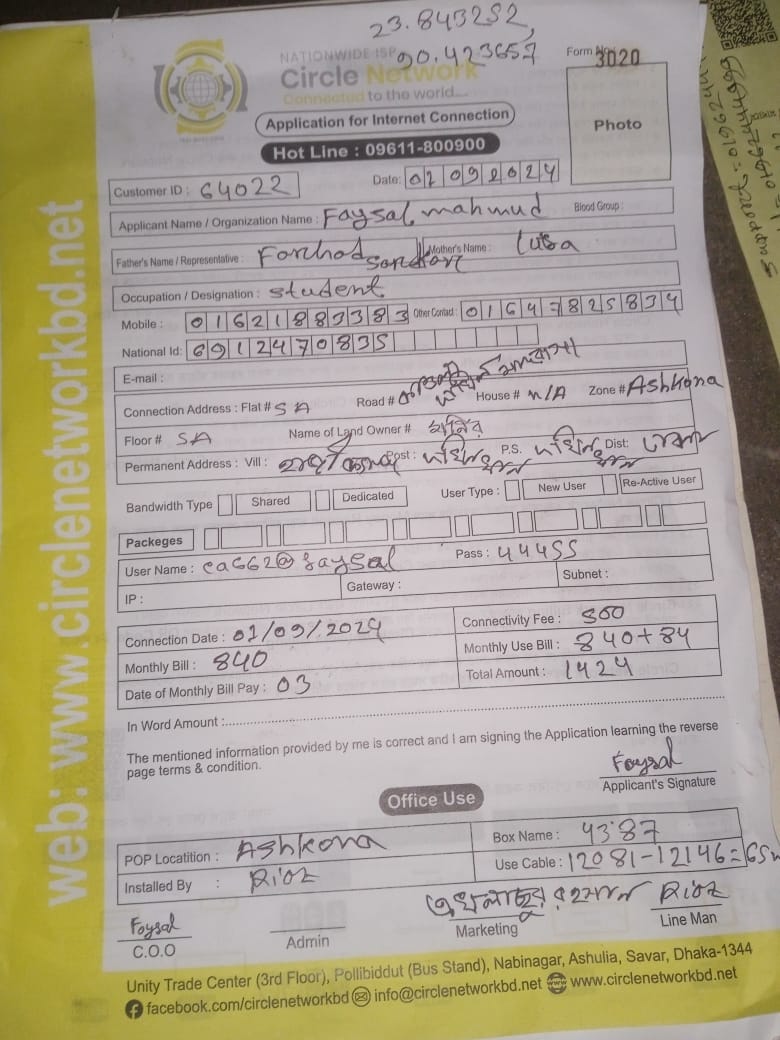 23.843252,
90.423657
NATIONWIDE ISP
Form No 3020
Circle Network
Connected to the world...
Application for Internet Connection
Photo
Hot Line : 09611-800900
Customer ID : 64022
Date: 02 09 2024
Applicant Name / Organization Name : Faysal mahmud Blood Group :
Father's Name / Representative : Forhad sardar Mother's Name : luisa
Occupation / Designation : student
Mobile : 01621883383 Other Contact : 01647825834
National Id: 6912470835
E-mail :
Connection Address : Flat # 5A Road # House # N/A Zone # Ashkona
Floor # 5A Name of Land Owner #
Permanent Address : Vill : Post : P.S. Dist:
Bandwidth Type Shared Dedicated User Type : New User Re-Active User
Packeges
User Name : ca662@faysal Pass : 44455
IP : Gateway : Subnet :
Connection Date : 02/09/2024 Connectivity Fee : 500
Monthly Bill : 840 Monthly Use Bill : 840+84
Date of Monthly Bill Pay : 03 Total Amount : 1424
In Word Amount :
The mentioned information provided by me is correct and I am signing the Application learning the reverse
page terms & condition.
Faysal
Applicant's Signature
Office Use
POP Locatition : Ashkona Box Name : 4387
Installed By : Use Cable : 12081-12146=65m
Faysal
C.O.O Admin Marketing Line Man
Unity Trade Center (3rd Floor), Pollibiddut (Bus Stand), Nabinagar, Ashulia, Savar, Dhaka-1344
facebook.com/circlenetworkbd info@circlenetworkbd.net www.circlenetworkbd.net
web: www.circlenetworkbd.net